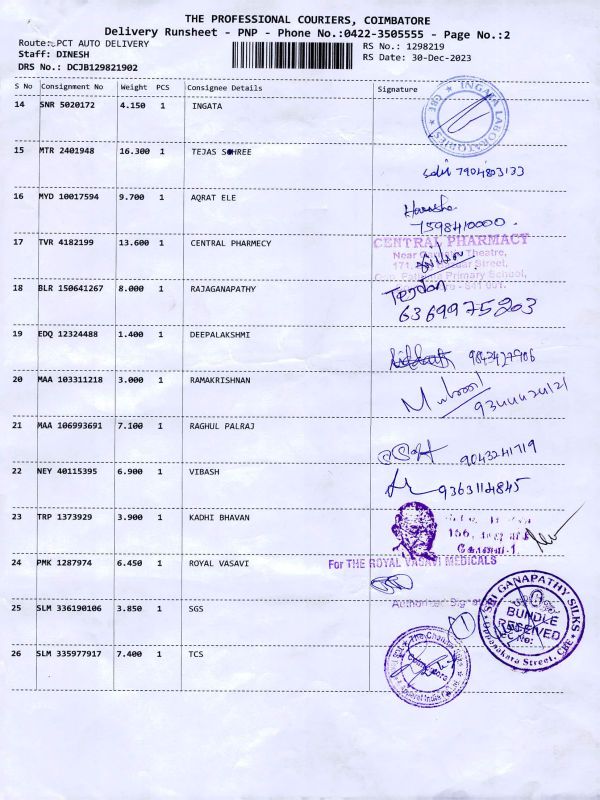 THE PROFESSIONAL COURIERS, COIMBATORE
Delivery Runsheet - PNP - Phone No.:0422-3505555 - Page No.:2
Route:PCT AUTO DELIVERY
RS No.: 1298219
Staff: DINESH
RS Date: 30-Dec-2023
DRS No.: DCJB129821902
S No Consignment No Weight PCS Consignee Details Signature
14 SNR 5020172 4.150 1 INGATA
INGATA LABORATORIES CBE
15 MTR 2401948 16.300 1 TEJAS SCHREE
7904803133
16 MYD 10017594 9.700 1 AQRAT ELE
7598410000.
17 TVR 4182199 13.600 1 CENTRAL PHARMECY
CENTRAL PHARMACY
Theatre,
171, Street,
Primary School,
18 BLR 150641267 8.000 1 RAJAGANAPATHY
6369975203
19 EDQ 12324488 1.400 1 DEEPALAKSHMI
20 MAA 103311218 3.000 1 RAMAKRISHNAN
21 MAA 106993691 7.100 1 RAGHUL PALRAJ
9043241719
22 NEY 40115395 6.900 1 VIBASH
9363114845
23 TRP 1373929 3.900 1 KADHI BHAVAN
156,
கோவை-1
24 PMK 1287974 6.450 1 ROYAL VASAVI
For THE ROYAL VASAVI MEDICALS
25 SLM 336190106 3.850 1 SGS
SRI GANAPATHY SILKS
BUNDLE
RECEIVED
Oppanakara Street, CBE
26 SLM 335977917 7.400 1 TCS
The Chennai Silks